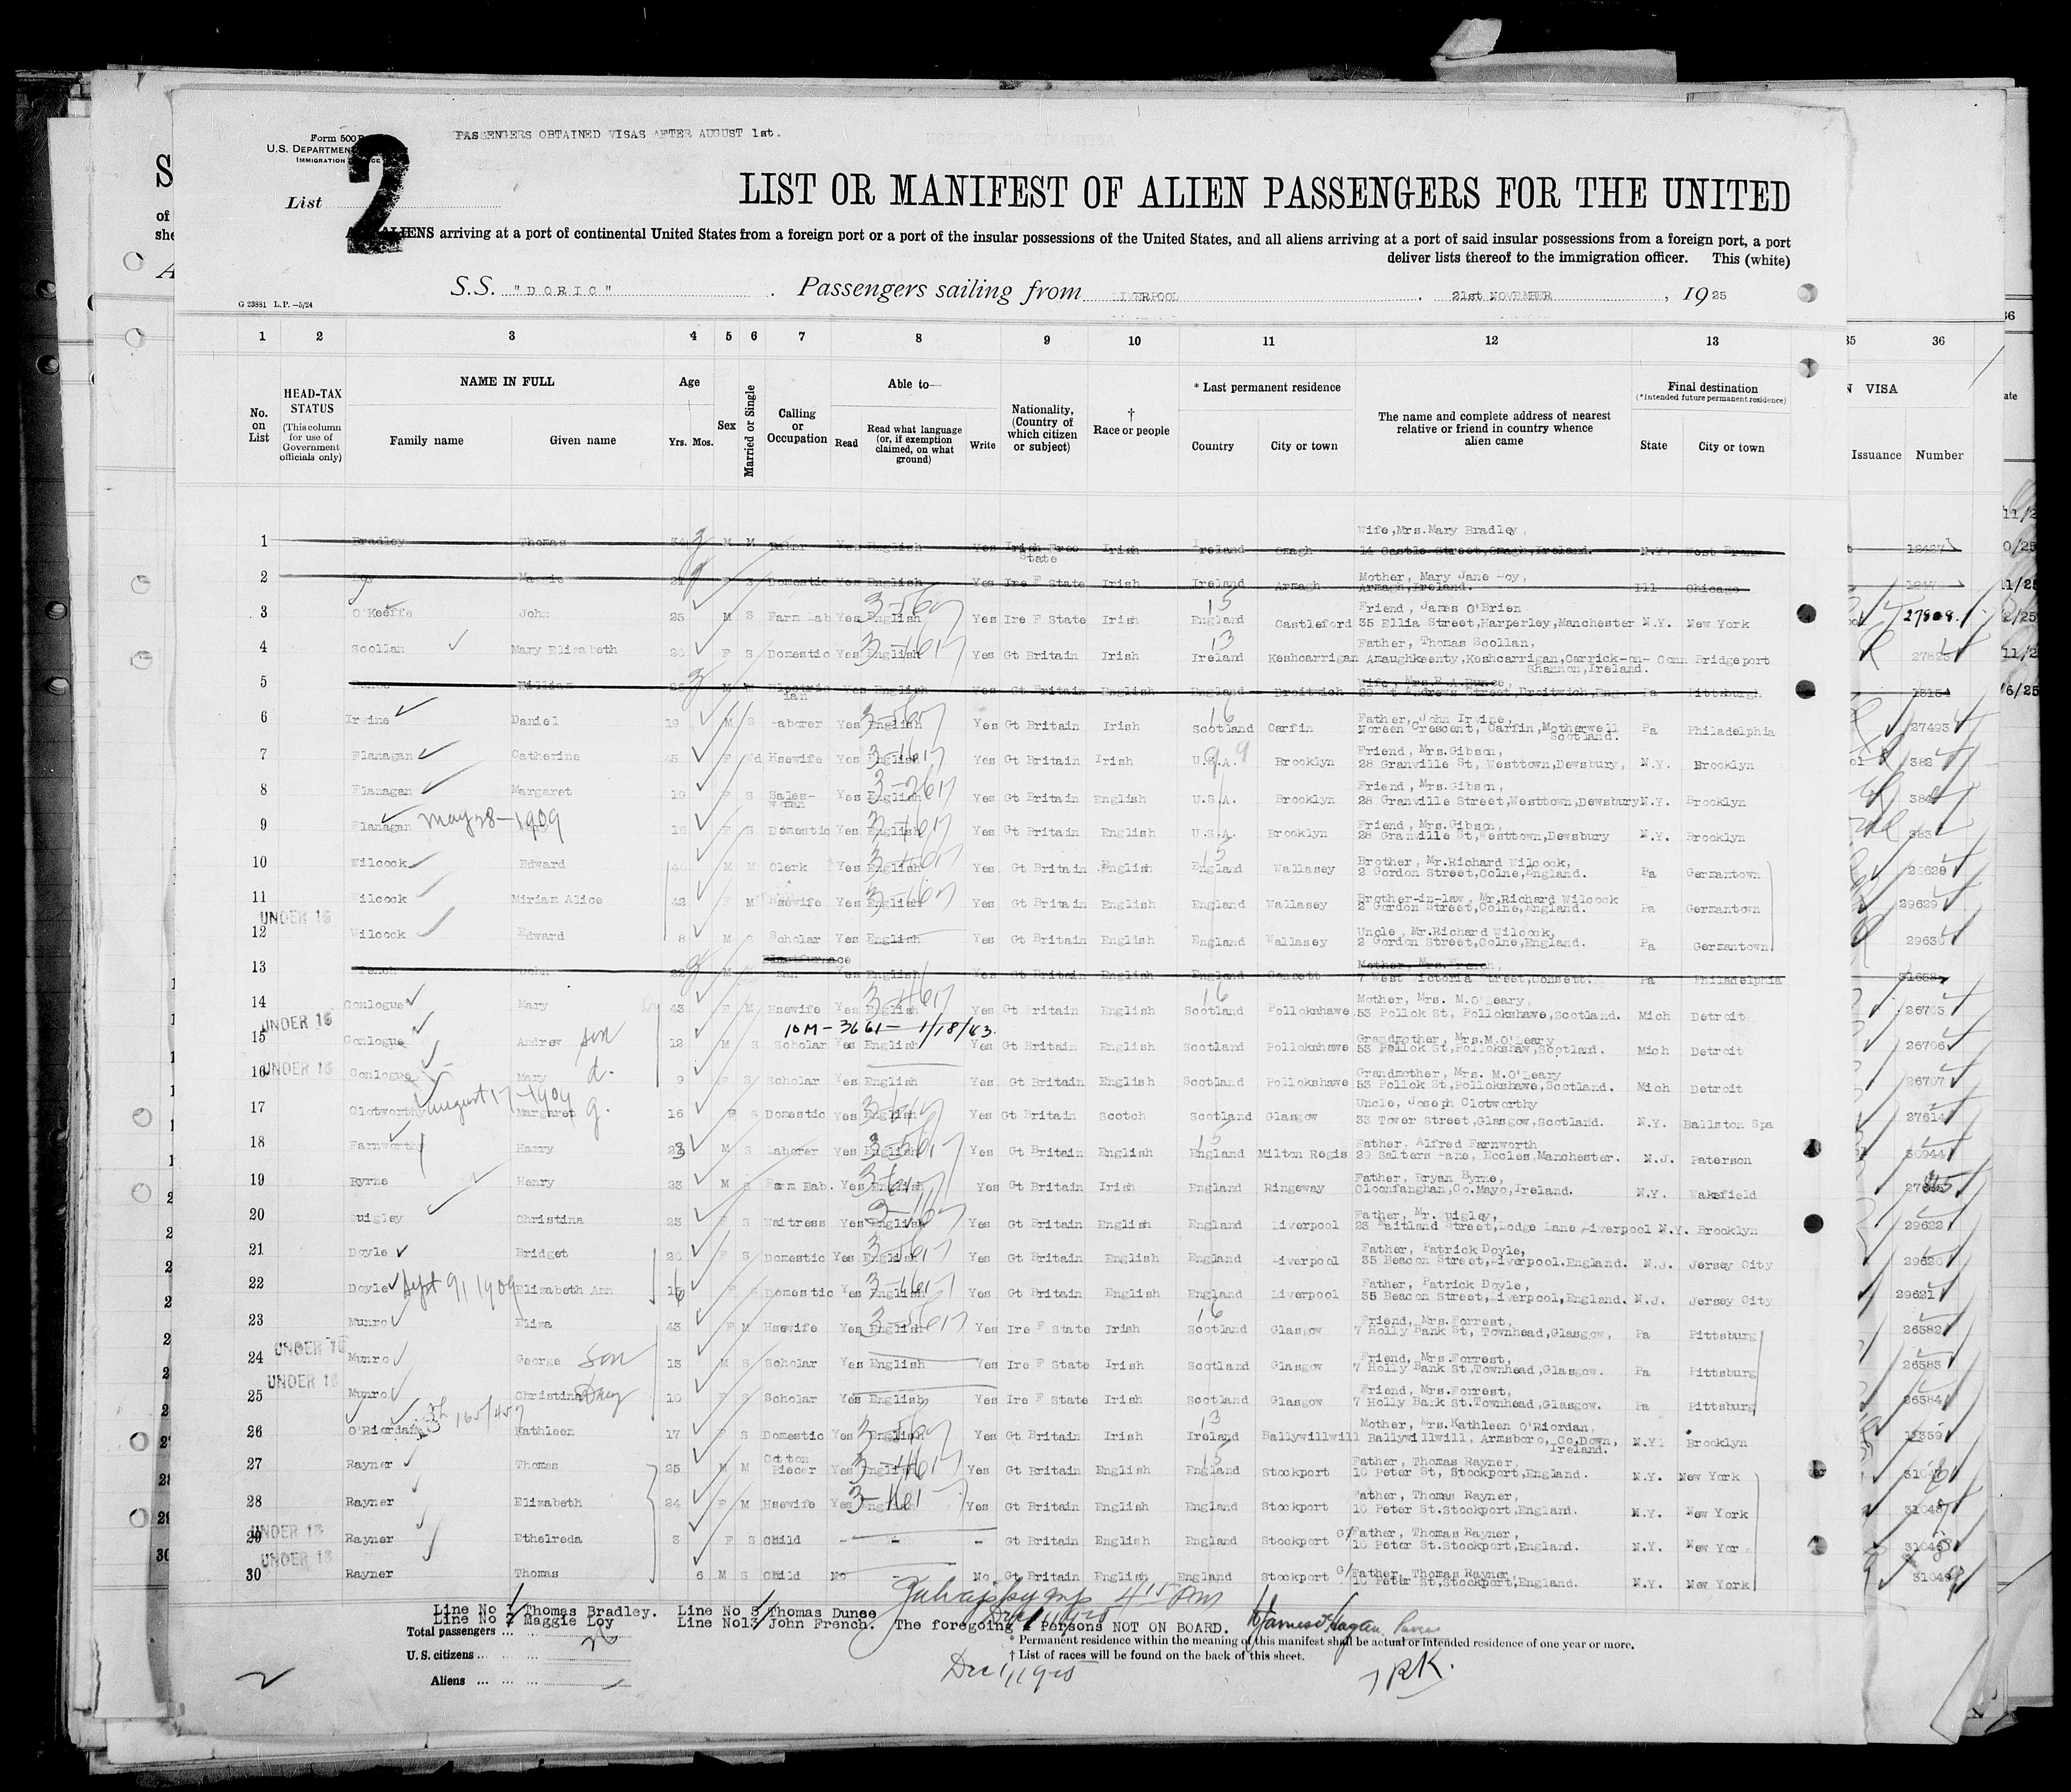 Form 500 B
U.S. DEPARTMENT
IMMIGRATION
PASSENGERS OBTAINED VISAS AFTER AUGUST 1st.
2
List
LIST OR MANIFEST OF ALIEN PASSENGERS FOR THE UNITED
ALIENS arriving at a port of continental United States from a foreign port or a port of the insular possessions of the United States, and all aliens arriving at a port of said insular possessions from a foreign port, a port
deliver lists thereof to the immigration officer. This (white)
G 23881 L.P.—5/24
S.S. "DORIC" . Passengers sailing from LIVERPOOL . 21st NOVEMBER , 1925
1 2 3 4 5 6 7 8 9 10 11 12 13 35 36
No. on List
HEAD-TAX STATUS (This column for use of Government officials only)
NAME IN FULL Family name Given name
Age Yrs. Mos.
Sex
Married or Single
Calling or Occupation
Able to— Read Read what language (or, if exemption claimed, on what ground) Write
Nationality, (Country of which citizen or subject)
† Race or people
* Last permanent residence Country City or town
The name and complete address of nearest relative or friend in country whence alien came
Final destination (*Intended future permanent residence) State City or town
VISA Issuance Number
1 Bradley Thomas 34 M M Baker Yes English Yes Irish Free State Irish Ireland Omagh Wife, Mrs.Mary Bradley, 14 Castle Street, Omagh, Ireland. N.Y. West Bronx
2 Loy Maggie 21 F S Domestic Yes English Yes Ire F State Irish Ireland Armagh Mother, Mary Jane Loy, Armagh, Ireland. Ill Chicago
3 O'Keeffe John 25 M S Farm Lab Yes English Yes Ire F State Irish England Castleford Friend, James O'Brien 35 Ellia Street, Harperley, Manchester N.Y. New York 27808.
4 Scollan Mary Elizabeth 20 F S Domestic Yes English Yes Gt Britain Irish Ireland Keshcarrigan Father, Thomas Scollan, Amaughkeenty, Keshcarrigan, Carrick-on-Shannon, Ireland. Conn Bridgeport
5 William M M Electrician Yes English Yes Gt Britain English England Droitwich Wife, Mrs.R.A.Dunce, St Andrews Street Droitwich, Eng. Pa Pittsburgh
6 Irvine Daniel 19 M S Laborer Yes English Yes Gt Britain Irish Scotland Carfin Father, John Irvine, Noreen Crescent, Carfin, Motherwell Scotland. Pa Philadelphia 27493
7 Flanagan Catherine 45 F Wd Hsewife Yes English Yes Gt Britain Irish U.S.A. Brooklyn Friend, Mrs.Gibson, 28 Granville St, Westtown, Dewsbury, N.Y. Brooklyn 382
8 Flanagan Margaret 19 F S Sales-woman Yes English Yes Gt Britain English U.S.A. Brooklyn Friend, Mrs.Gibson, 28 Granville Street, Westtown, Dewsbury N.Y. Brooklyn 384
9 Flanagan May 28-1909 16 F S Domestic Yes English Yes Gt Britain English U.S.A. Brooklyn Friend, Mrs.Gibson, 28 Granville St, Westtown, Dewsbury N.Y. Brooklyn 383
10 Wilcock Edward 40 M M Clerk Yes English Yes Gt Britain English England Wallasey Brother, Mr.Richard Wilcock, 2 Gordon Street, Colne, England. Pa Germantown 29628
11 Wilcock Miriam Alice 42 F M Hsewife Yes English Yes Gt Britain English England Wallasey Brother-in-law, Mr.Richard Wilcock 2 Gordon Street, Colne, England. Pa Germantown 29629
UNDER 16
12 Wilcock Edward 8 M S Scholar Yes English Yes Gt Britain English England Wallasey Uncle, Mr.Richard Wilcock, 2 Gordon Street, Colne, England. Pa Germantown 29630
13 French John 22 M Blastfurnace Man Yes English Yes Gt Britain English England Consett Mother, Mrs.French, 7 West Victoria Street, Consett. Pa Philadelphia
14 Conlogue Mary 43 F M Hsewife Yes English Yes Gt Britain English Scotland Pollokshawe Mother, Mrs. M.O'Leary, 53 Pollok St, Pollokshawe, Scotland. Mich Detroit 26705
UNDER 16 10M-3661-1/18/43.
15 Conlogue Andrew son 12 M S Scholar Yes English Yes Gt Britain English Scotland Pollokshawe Grandmother, Mrs.M.O'Leary 53 Pollok St, Pollokshaw, Scotland. Mich Detroit 26706
UNDER 16
16 Conlogue Mary d. 9 F S Scholar Yes English Yes Gt Britain English Scotland Pollokshawe Grandmother, Mrs. M.O'Leary 53 Pollok St, Pollokshawe, Scotland. Mich Detroit 26707
17 Clotworthy August 17-1909 Margaret 16 F S Domestic Yes English Yes Gt Britain Scotch Scotland Glasgow Uncle, Joseph Clotworthy 33 Tower Street, Glasgow, Scotland. N.Y. Ballston Spa 27614
18 Farnworth Harry 23 M S Laborer Yes English Yes Gt Britain English England Milton Regis Father, Alfred Farnworth 29 Salters Lane, Eccles, Manchester. N.J. Paterson 30944
19 Byrne Henry 23 M S Farm Lab. Yes English Yes Gt Britain Irish England Ringeway Father, Bryan Byrne, Cloonfanghan, Co.Mayo, Ireland. N.Y. Wakefield
20 Quigley Christina 23 F S Waitress Yes English Yes Gt Britain English England Liverpool Father, Mr.Quigley, 23 Maitland Street, Lodge Lane Liverpool N.Y. Brooklyn 29622
21 Doyle Bridget 20 F S Domestic Yes English Yes Gt Britain English England Liverpool Father, Patrick Doyle, 35 Beacon Street, Liverpool.England. N.J. Jersey City 29620
22 Doyle Sept 9, 1909 Elizabeth Ann 16 F S Domestic Yes English Yes Gt Britain English England Liverpool Father, Patrick Doyle, 35 Beacon Street, Liverpool, England. N.J. Jersey City 29621
23 Munro Eliza 43 F M Hsewife Yes English Yes Ire F State Irish Scotland Glasgow Friend, Mrs.Forrest, 7 Holly Bank St, Townhead, Glasgow, Pa Pittsburg 26582
UNDER 16
24 Munro George Son 13 M S Scholar Yes English Yes Ire F State Irish Scotland Glasgow Friend, Mrs.Forrest, 7 Holly Bank St, Townhead, Glasgow. Pa Pittsburg 26583
UNDER 16
25 Munro Christina Daug 10 F S Scholar Yes English Yes Ire F State Irish Scotland Glasgow Friend, Mrs.Forrest, 7 Holly Bank St.Townhead, Glasgow. Pa Pittsburg 26584
26 O'Riordan Kathleen 17 F S Domestic Yes English Yes Gt Britain Irish Ireland Ballywillwill Mother, Mrs.Kathleen O'Riordan, Ballywillwill, Armsboro, Co.Down, Ireland. N.Y. Brooklyn
27 Rayner Thomas 25 M M Cotton Piecer Yes English Yes Gt Britain English England Stockport Father, Thomas Rayner, 10 Peter St, Stockport, England. N.Y. New York
28 Rayner Elizabeth 24 F M Hsewife Yes English Yes Gt Britain English England Stockport Father, Thomas Rayner, 10 Peter St.Stockport, England. N.Y. New York
UNDER 16
29 Rayner Ethelreda 3 F S Child - - - Gt Britain English England Stockport G/Father, Thomas Rayner, 10 Peter St.Stockport, England. N.Y. New York
UNDER 16
30 Rayner Thomas 6 M S Child No - No Gt Britain English England Stockport G/Father, Thomas Rayner, 10 Peter St, Stockport, England. N.Y. New York
Line No 1 Thomas Bradley. Line No 5 Thomas Dunce
Line No 2 Maggie Loy Line No13 John French. The foregoing 4 Persons NOT ON BOARD.
Total passengers
* Permanent residence within the meaning of this manifest shall be actual or intended residence of one year or more.
U.S. citizens
† List of races will be found on the back of this sheet.
Aliens
Dec 1, 1925